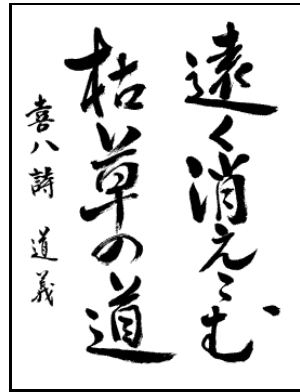 遠く消えこむ
枯草の道
喜八詩 道義